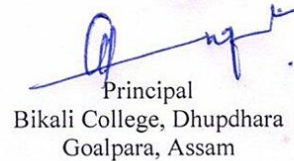 Principal
Bikali College, Dhupdhara
Goalpara, Assam